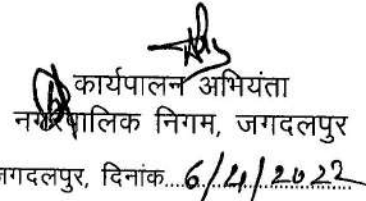 कार्यपालन अभियंता
नगरपालिक निगम, जगदलपुर
जगदलपुर, दिनांक...6/4/2022